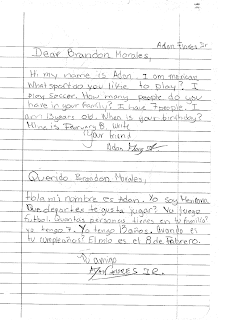 Adan Flores Jr.
Dear Brandon Morales,
Hi my name is Adan. I am mexican.
What sport do you like to play? I
play soccer. How many people do you
have in your family? I have 7 people. I
am 13 years old. When is your birthday?
Mine is February 8. Write
Your friend
Adan
Querido Brandon Morales,
Hola mi nombre es Adan. Yo soy Mexicano
Que deportes te gusta jugar? Yo juego
futbol. Cuantas personas tienes en tu familia?
yo tengo 7. Yo tengo 13 años. Cuando es
tu cumpleaños? El mio es el 8 de Febrero.
Tu amigo
FLORES JR.